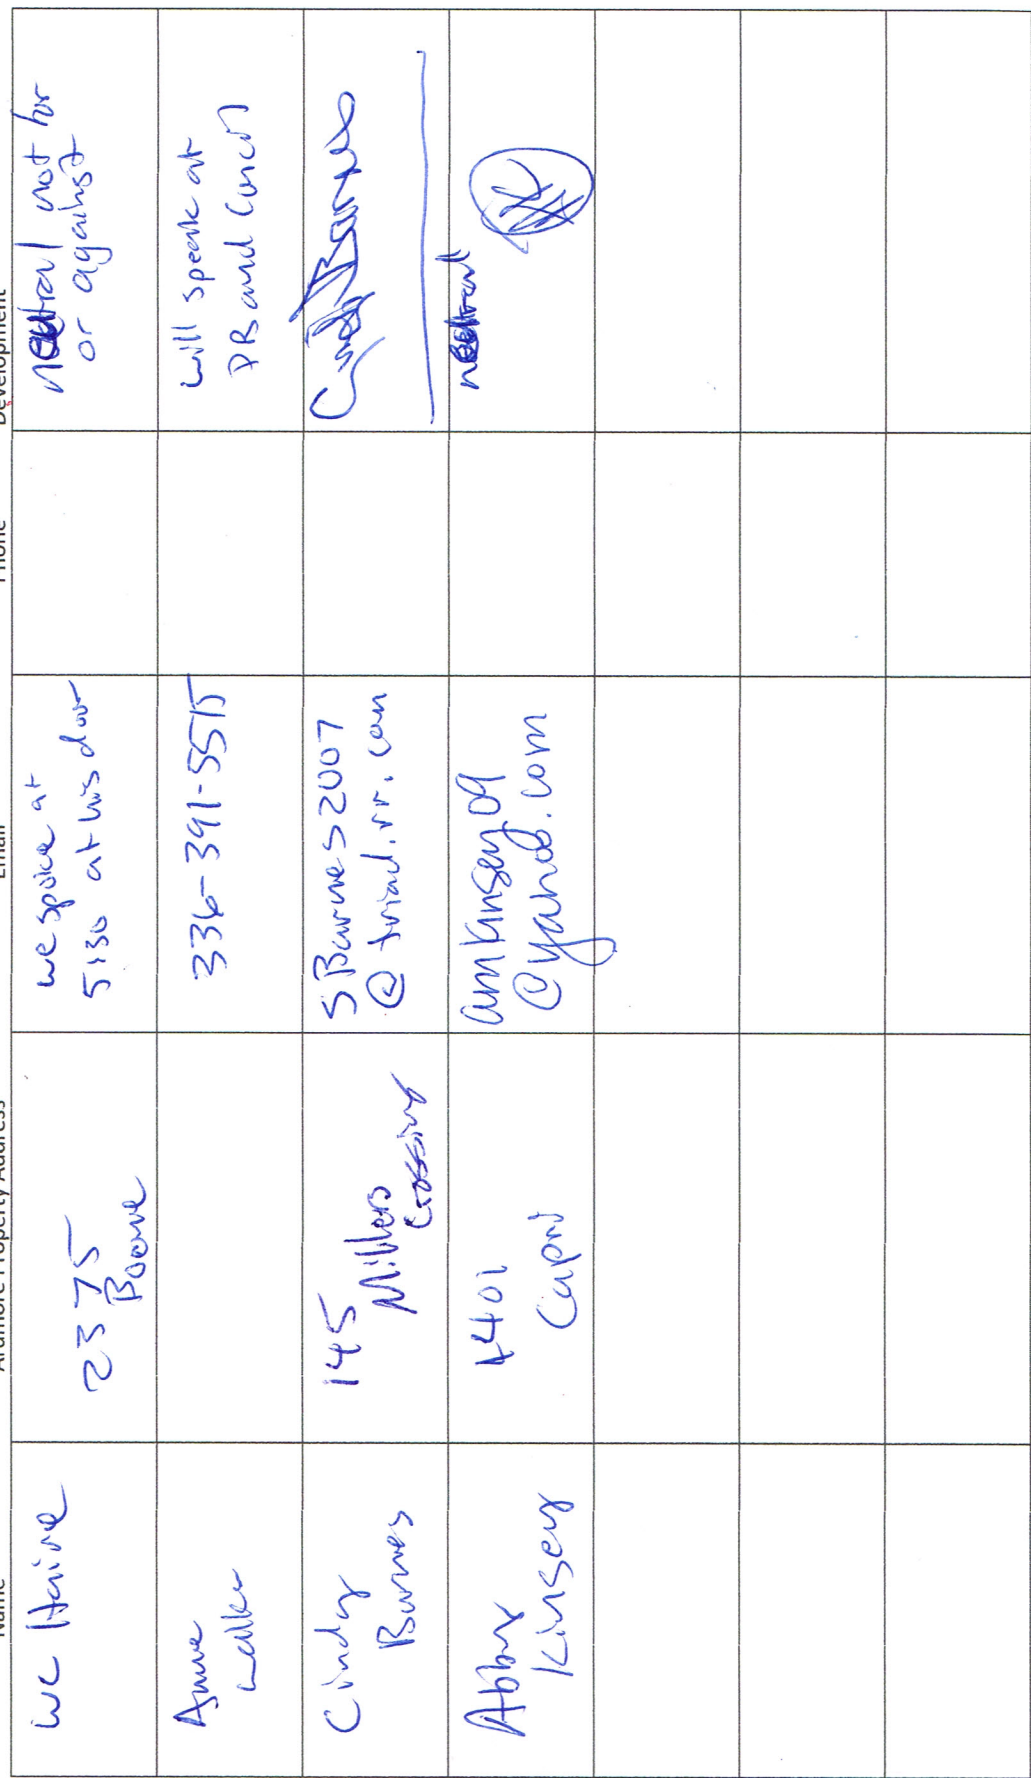 Name Ardmore Property Address Email Phone Development
WC Haire
2375
Boone
we spoke at
5:30 at his door
neutral not for
or against
Anne
Walker
336-391-5515
will speak at
PB and Council
Cindy
Barnes
145
Millers
Crossing
SBarnes2007
@triad.rr.com
Cindy Barnes
Abby
Kinsey
1401
Capri
amkinsey09
@yahoo.com
neutral